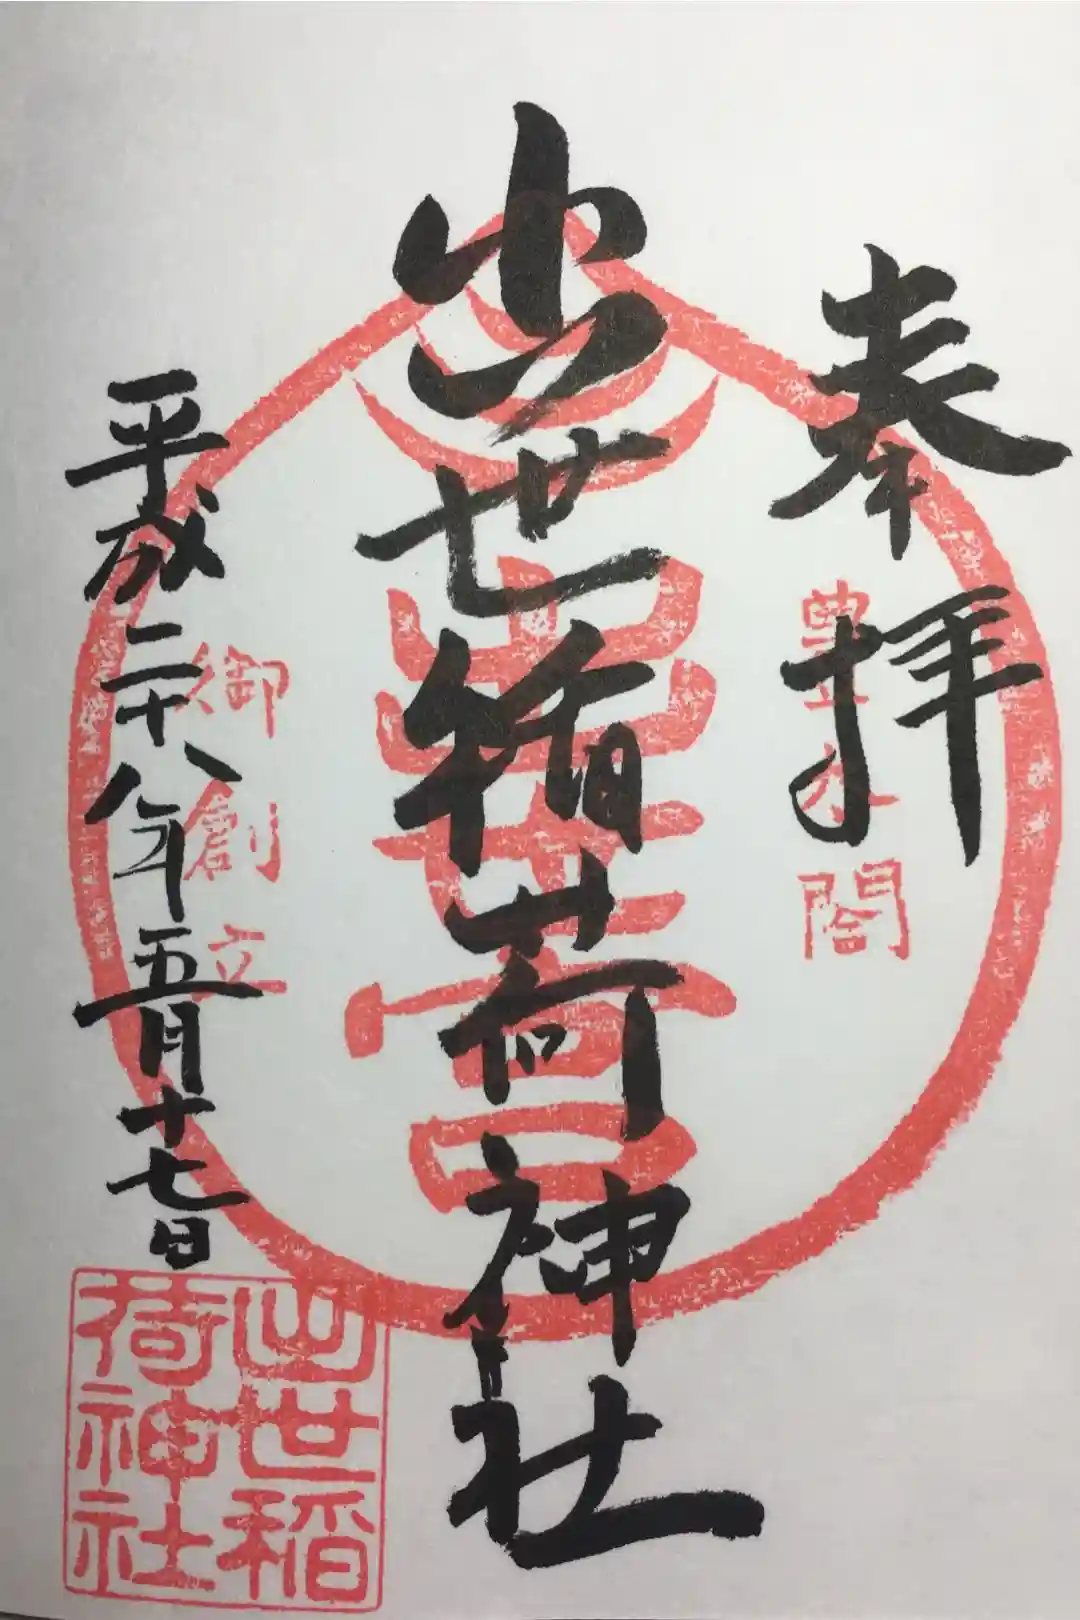 奉拝
豊太閤
出世稲荷神社
御創立
平成二十八年五月十七日
出世稲
荷神社